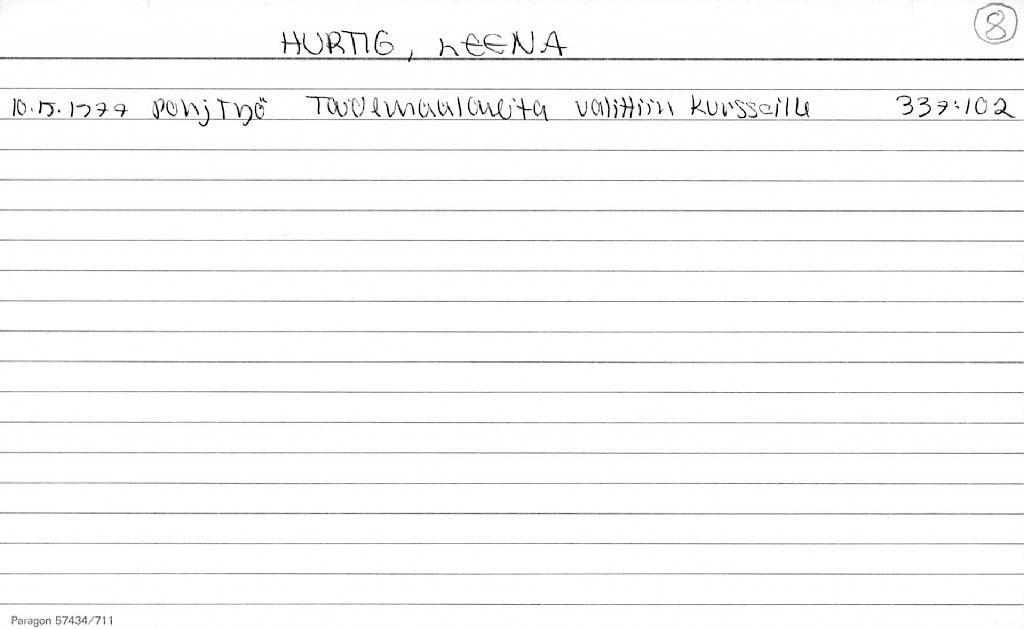 8
HURTIG, LEENA
10.5.1977 PohjTyö Taidemaalareita valittiin kursseille 337:102
Paragon 57434/711